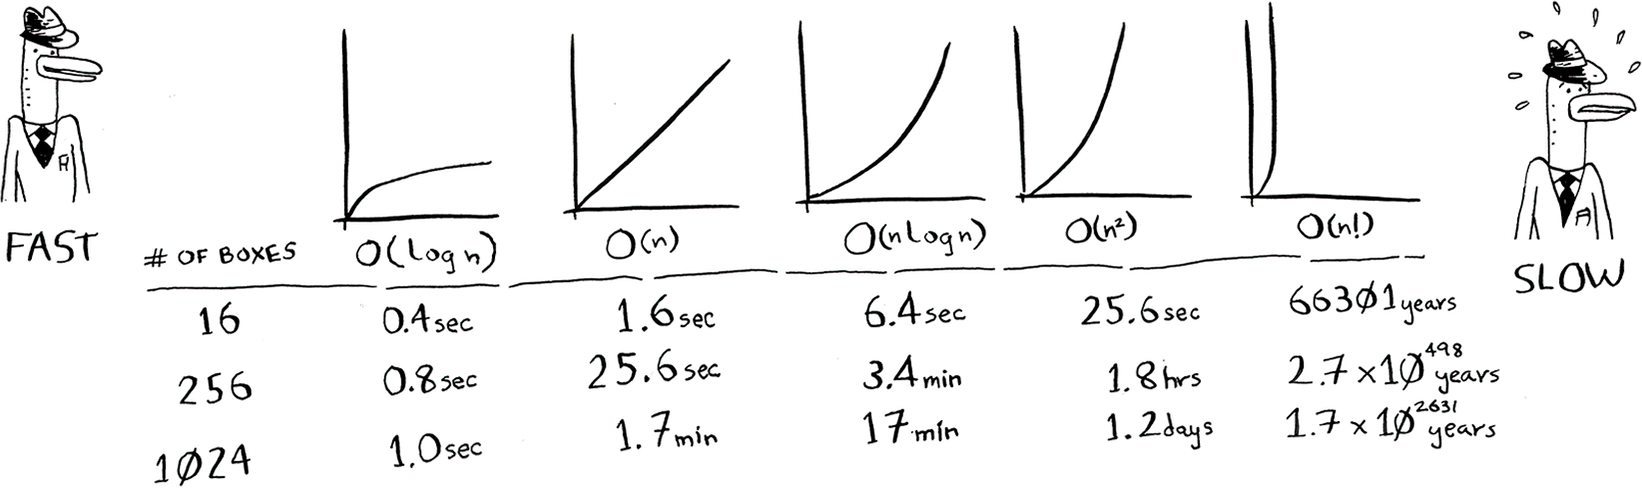 FAST
# OF BOXES O(log n) O(n) O(n log n) O(n²) O(n!)
SLOW
16 0.4 sec 1.6 sec 6.4 sec 25.6 sec 66301 years
256 0.8 sec 25.6 sec 3.4 min 1.8 hrs 2.7 x 10⁴⁹⁸ years
1024 1.0 sec 1.7 min 17 min 1.2 days 1.7 x 10²⁶³¹ years